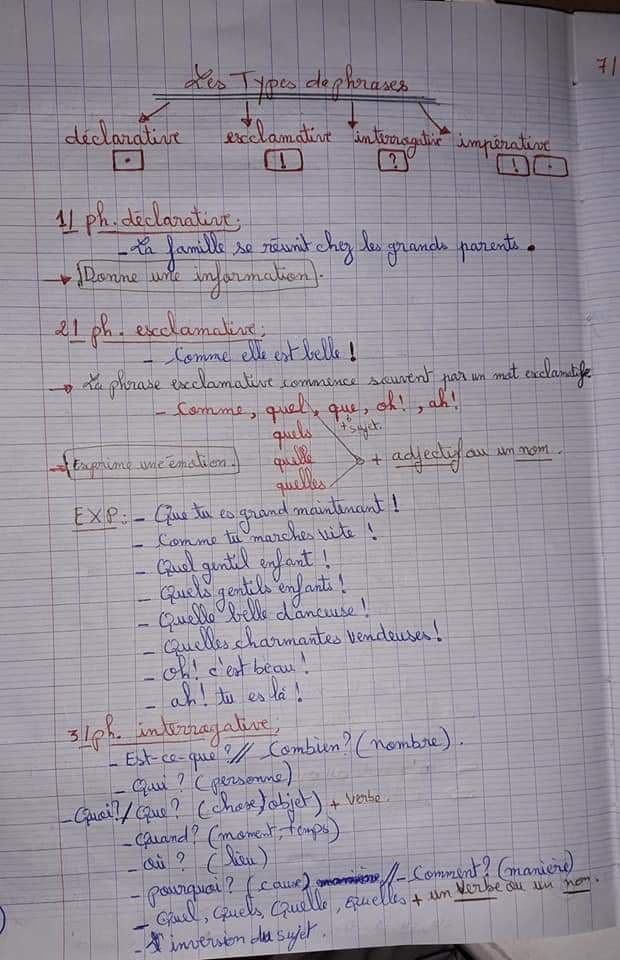 7/
Les Types de phrases
déclarative esclamative interragative impérative
. ! ? ! .
1/ ph. déclarative;
- La famille se réunit chez les grands parents.
→ Donne une information.
2/ ph. esclamative;
- Comme elle est belle !
→ La phrase esclamative commence souvent par un mot esclamatif
- Comme, quel, que, oh!, ah!
quels + sujet.
→ Exprime une émotion. quelle + adjectif ou un nom.
quelles
EXP: - Que tu es grand maintenant !
- Comme tu marches vite !
- Quel gentil enfant !
- Quels gentils enfants !
- Quelle belle danceuse !
- Quelles charmantes vendeuses !
- oh! c'est beau !
- ah! tu es là !
3/ ph. interragative;
- Est-ce-que ? // Combien ? (nombre).
- Qui ? (personne)
- Quoi ? / Que ? (chose/objet) + verbe.
- Quand ? (moment, temps)
- où ? (lieu)
- pourquoi ? (cause) // - Comment ? (manière)
- Quel, Quels, Quelle, Quelles + un Verbe ou un nom.
- L'inversion du sujet.